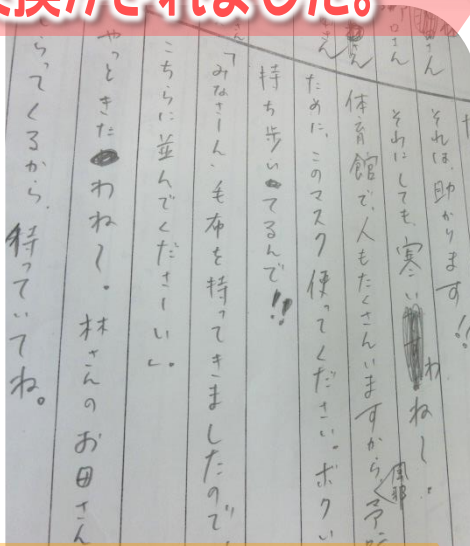 換がされました。
さん
それは、助かります!!
さん
それにしても、寒いわね～。
さん
体育館で、人もたくさんいますから、風邪予
ために、このマスク使ってください。ボクい
持ち歩いてるんで!!
「みなさーん、毛布を持ってきましたので、
こちらに並んでくださーい」。
やっときたわね～。林さんのお母さん
らってくるから、待っていてね。